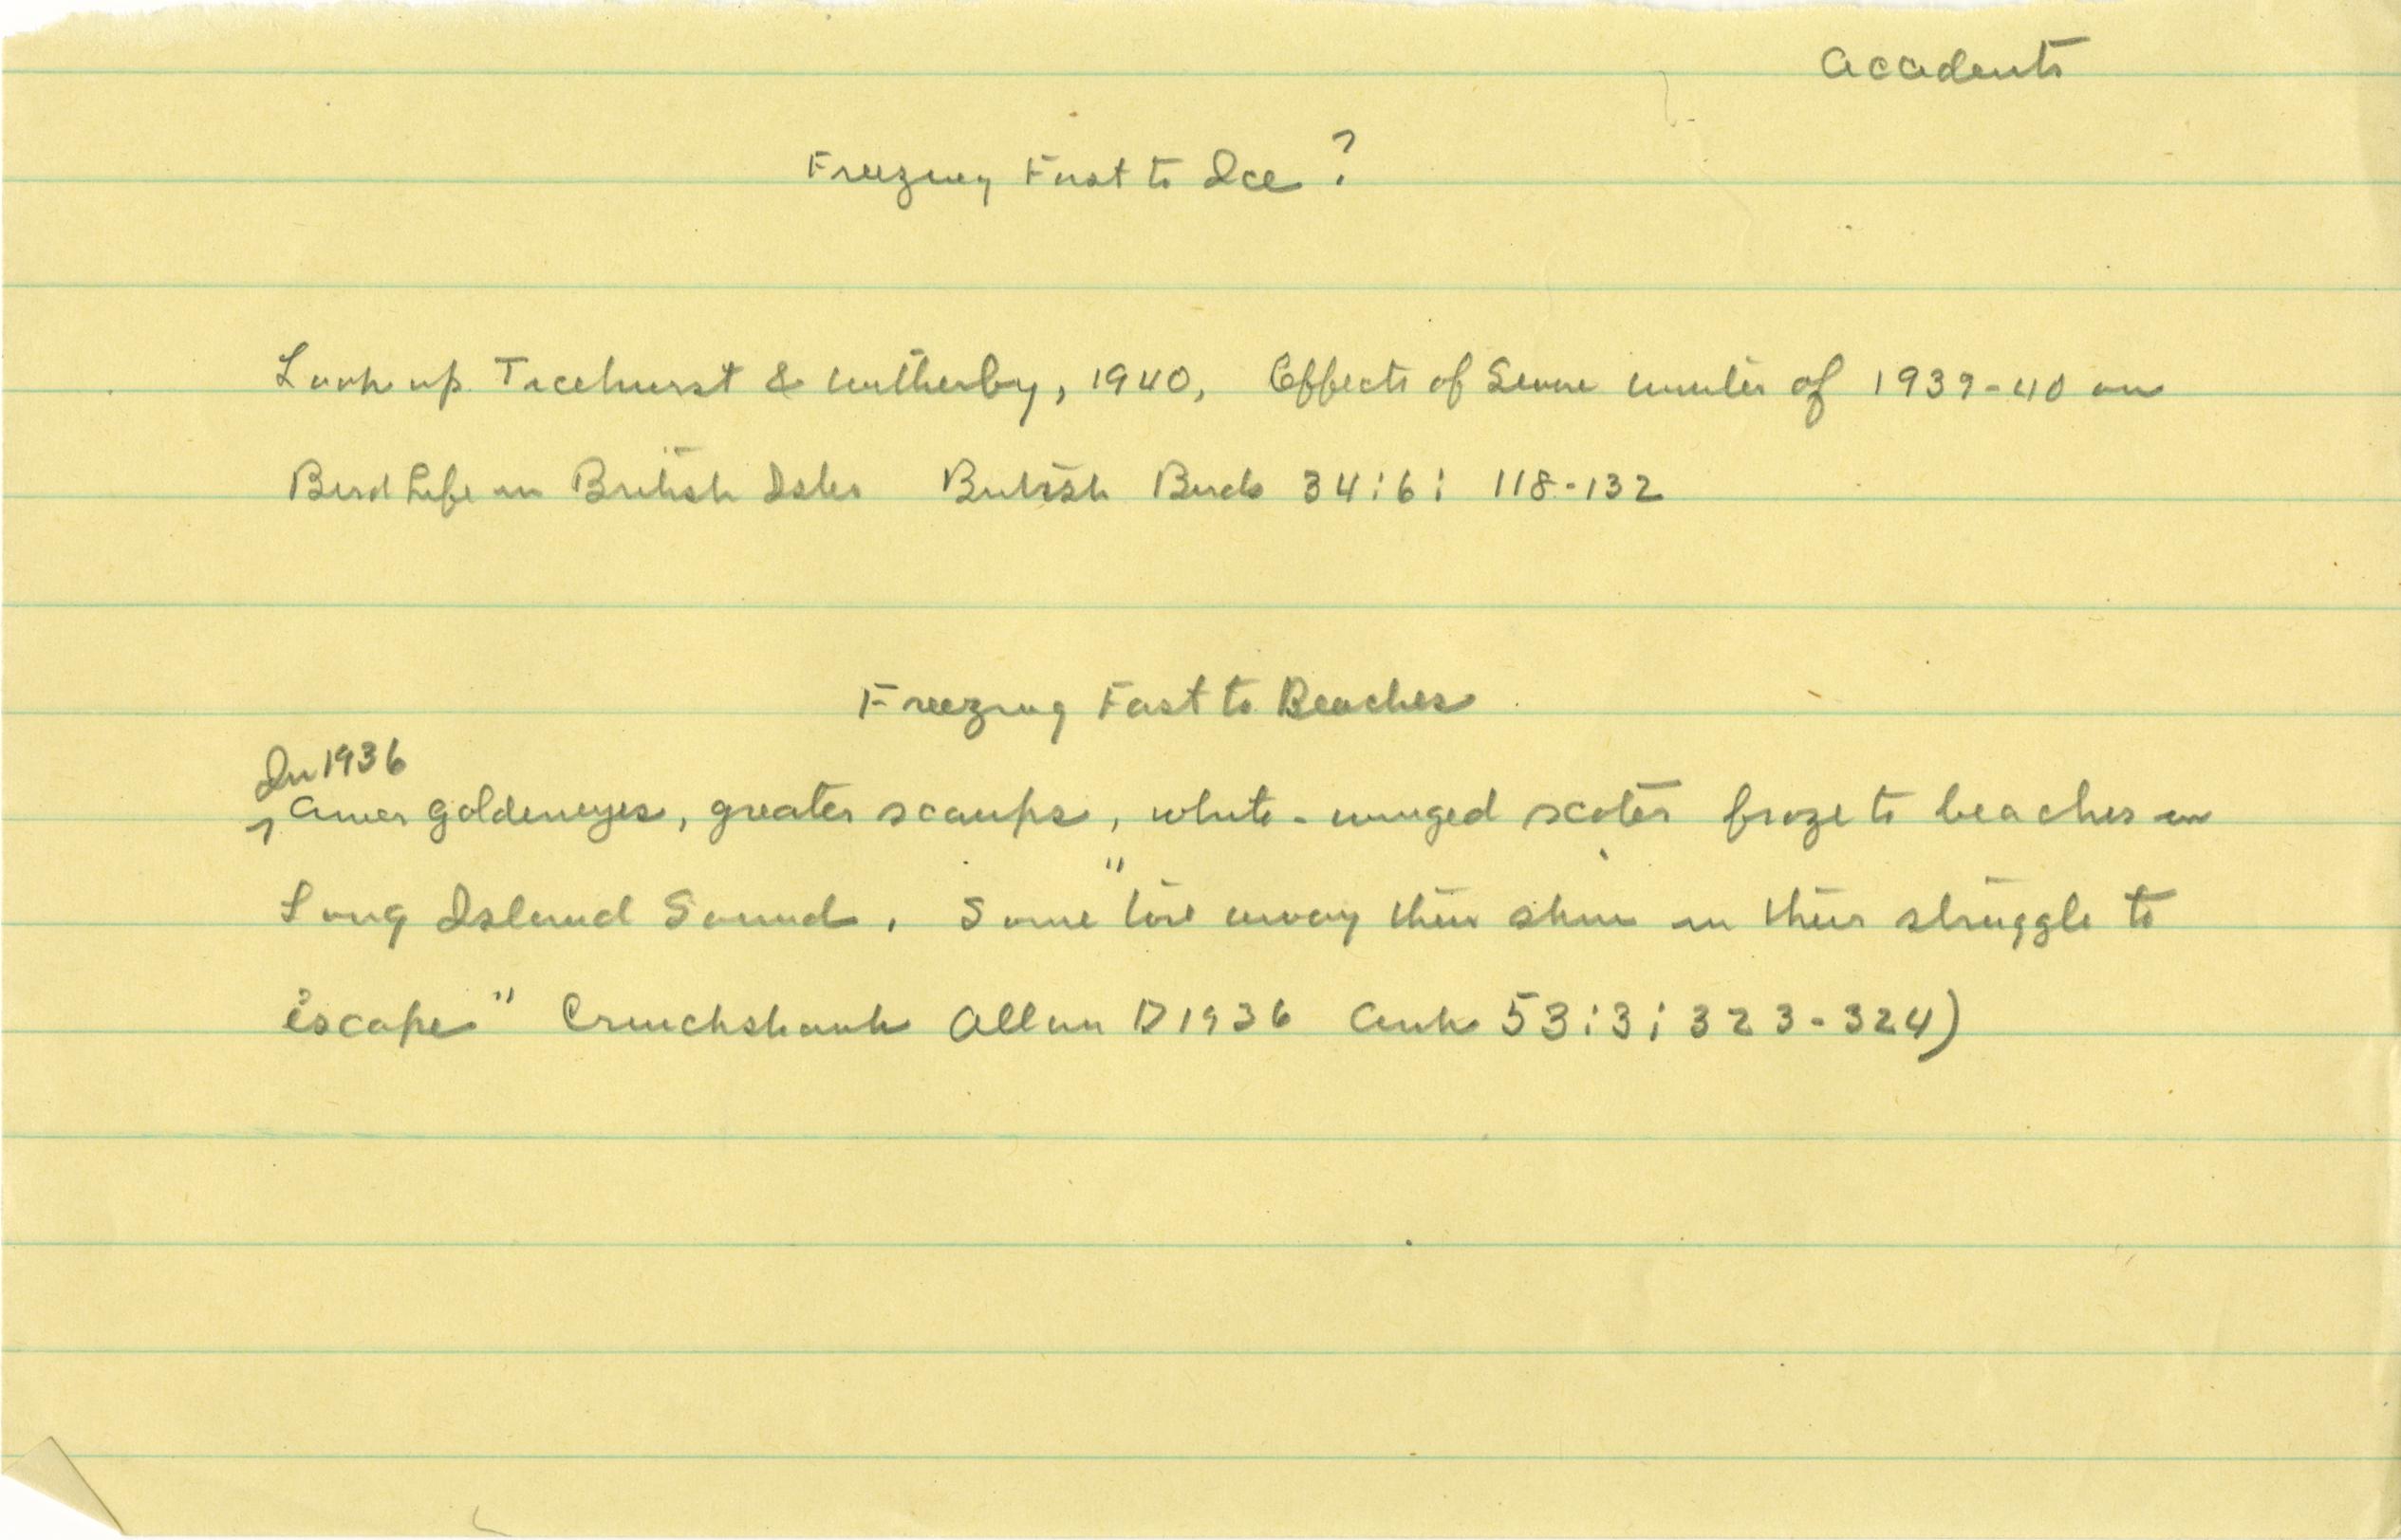 Accidents
Freezing Fast to Ice?
Look up Ticehurst & Witherby, 1940, Effects of Severe winter of 1939-40 on
Bird Life in British Isles British Birds 34:6: 118-132
Freezing Fast to Beaches
In 1936
Amer goldeneyes, greater scaups, white-winged scoter froze to beaches in
Long Island Sound. Some "tore away their skin in their struggle to
escape" Cruickshank Allan D 1936 Auk 53:3:323-324)